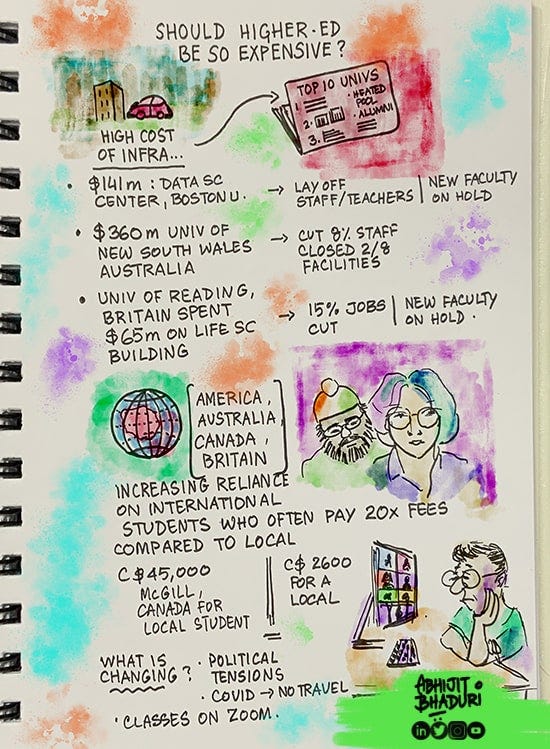 SHOULD HIGHER·ED
BE SO EXPENSIVE?
TOP 10 UNIVS
1.
2.
3.
· HEATED
POOL
· ALUMNI
HIGH COST
OF INFRA...
• $141m : DATA SC
CENTER, BOSTON U.
→ LAY OFF
STAFF/TEACHERS
NEW FACULTY
ON HOLD
• $360m UNIV OF
NEW SOUTH WALES
AUSTRALIA
→ CUT 8% STAFF
CLOSED 2/8
FACILITIES
• UNIV OF READING,
BRITAIN SPENT
$65m ON LIFE SC
BUILDING
→ 15% JOBS
CUT
NEW FACULTY
ON HOLD.
AMERICA,
AUSTRALIA,
CANADA,
BRITAIN
INCREASING RELIANCE
ON INTERNATIONAL
STUDENTS WHO OFTEN PAY 20x FEES
COMPARED TO LOCAL
C$45,000
McGILL,
CANADA FOR
LOCAL STUDENT
C$ 2600
FOR A
LOCAL
WHAT IS
CHANGING?
· POLITICAL
TENSIONS
· COVID → NO TRAVEL
· CLASSES ON ZOOM.
ABHIJIT
BHADURI